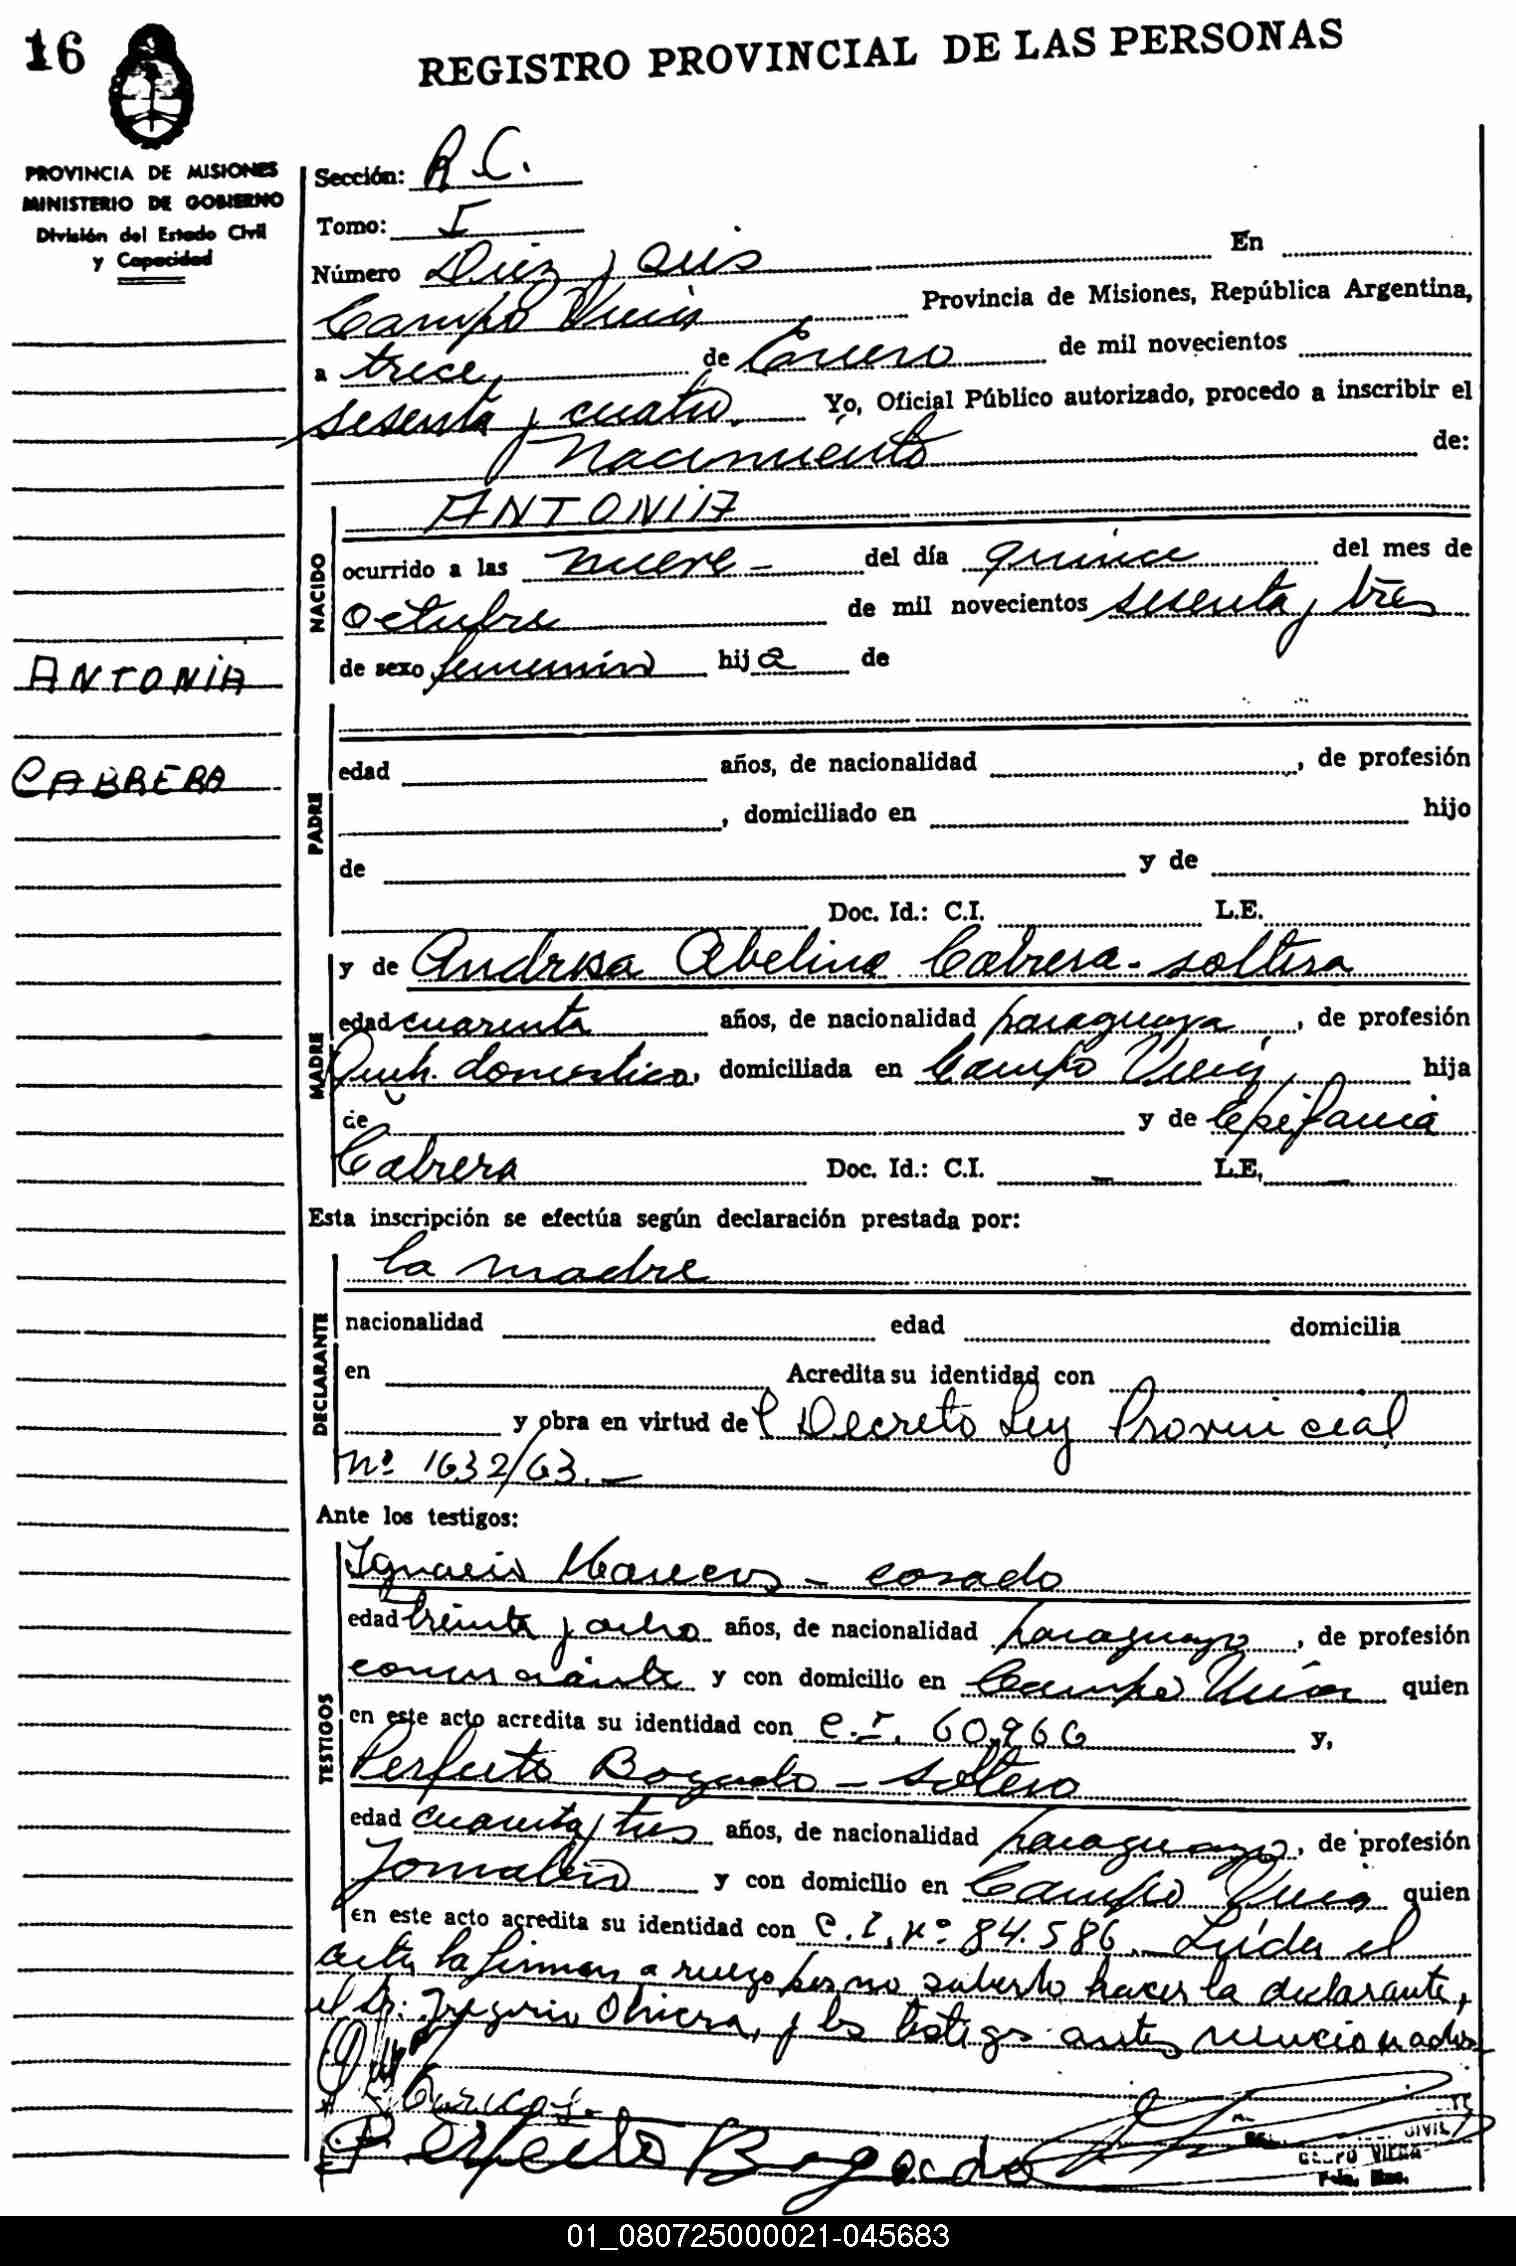 16
REGISTRO PROVINCIAL DE LAS PERSONAS
PROVINCIA DE MISIONES
MINISTERIO DE GOBIERNO
División del Estado Civil
y Capacidad
ANTONIA
CABRERA
Sección: R C.
Tomo: I
Número Diez y seis En
Campo Viera Provincia de Misiones, República Argentina,
a trece de Enero de mil novecientos
sesenta y cuatro Yo, Oficial Público autorizado, procedo a inscribir el
Nacimiento de:
NACIDO
ANTONIA
ocurrido a las nueve - del día quince del mes de
octubre de mil novecientos sesenta y tres
de sexo femenino hija de
PADRE
edad años, de nacionalidad , de profesión
, domiciliado en hijo
de y de
Doc. Id.: C.I. L.E.
MADRE
y de Andresa Abelina Cabrera - soltera
edad cuarenta años, de nacionalidad paraguaya, de profesión
domestica, domiciliada en Campo Viera hija
de y de Epifania
Cabrera Doc. Id.: C.I. - L.E. -
Esta inscripción se efectúa según declaración prestada por:
DECLARANTE
la madre
nacionalidad edad domicilia
en Acredita su identidad con
y obra en virtud del Decreto Ley Provincial
nº 1632/63. -
Ante los testigos:
TESTIGOS
Ignacio - casado
edad treinta y ocho años, de nacionalidad paraguayo, de profesión
comerciante y con domicilio en Campo Viera quien
en este acto acredita su identidad con C.I. 60.966 y,
Perfecto Bogado - soltero
edad cuarenta y tres años, de nacionalidad paraguayo, de profesión
Jornalero y con domicilio en Campo Viera quien
en este acto acredita su identidad con C.I. nº 84.586. Leída el
acta, la firman a ruego por no saberlo hacer la declarante,
el Sr. Gregorio y los testigos antes mencionados
Perfecto Bogado
CIVIL
CAMPO VIERA
Pcia. Mnes.
01_080725000021-045683